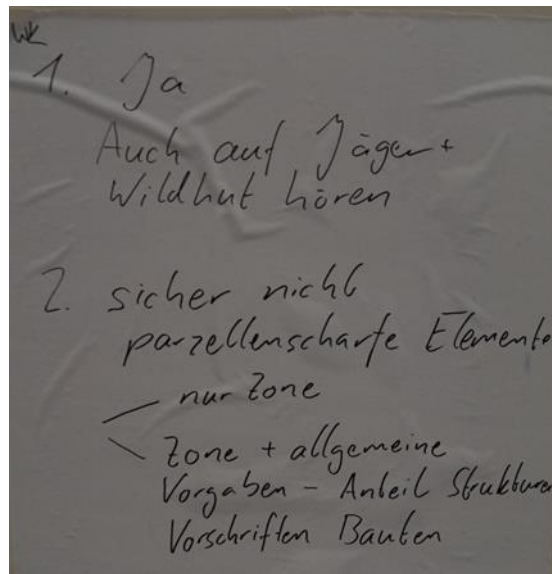 WK
1. Ja
Auch auf Jäger +
Wildhut hören
2. sicher nicht
parzellenscharfe Elemente
nur Zone
Zone + allgemeine
Vorgaben - Anteil Strukturen
Vorschriften Bauten